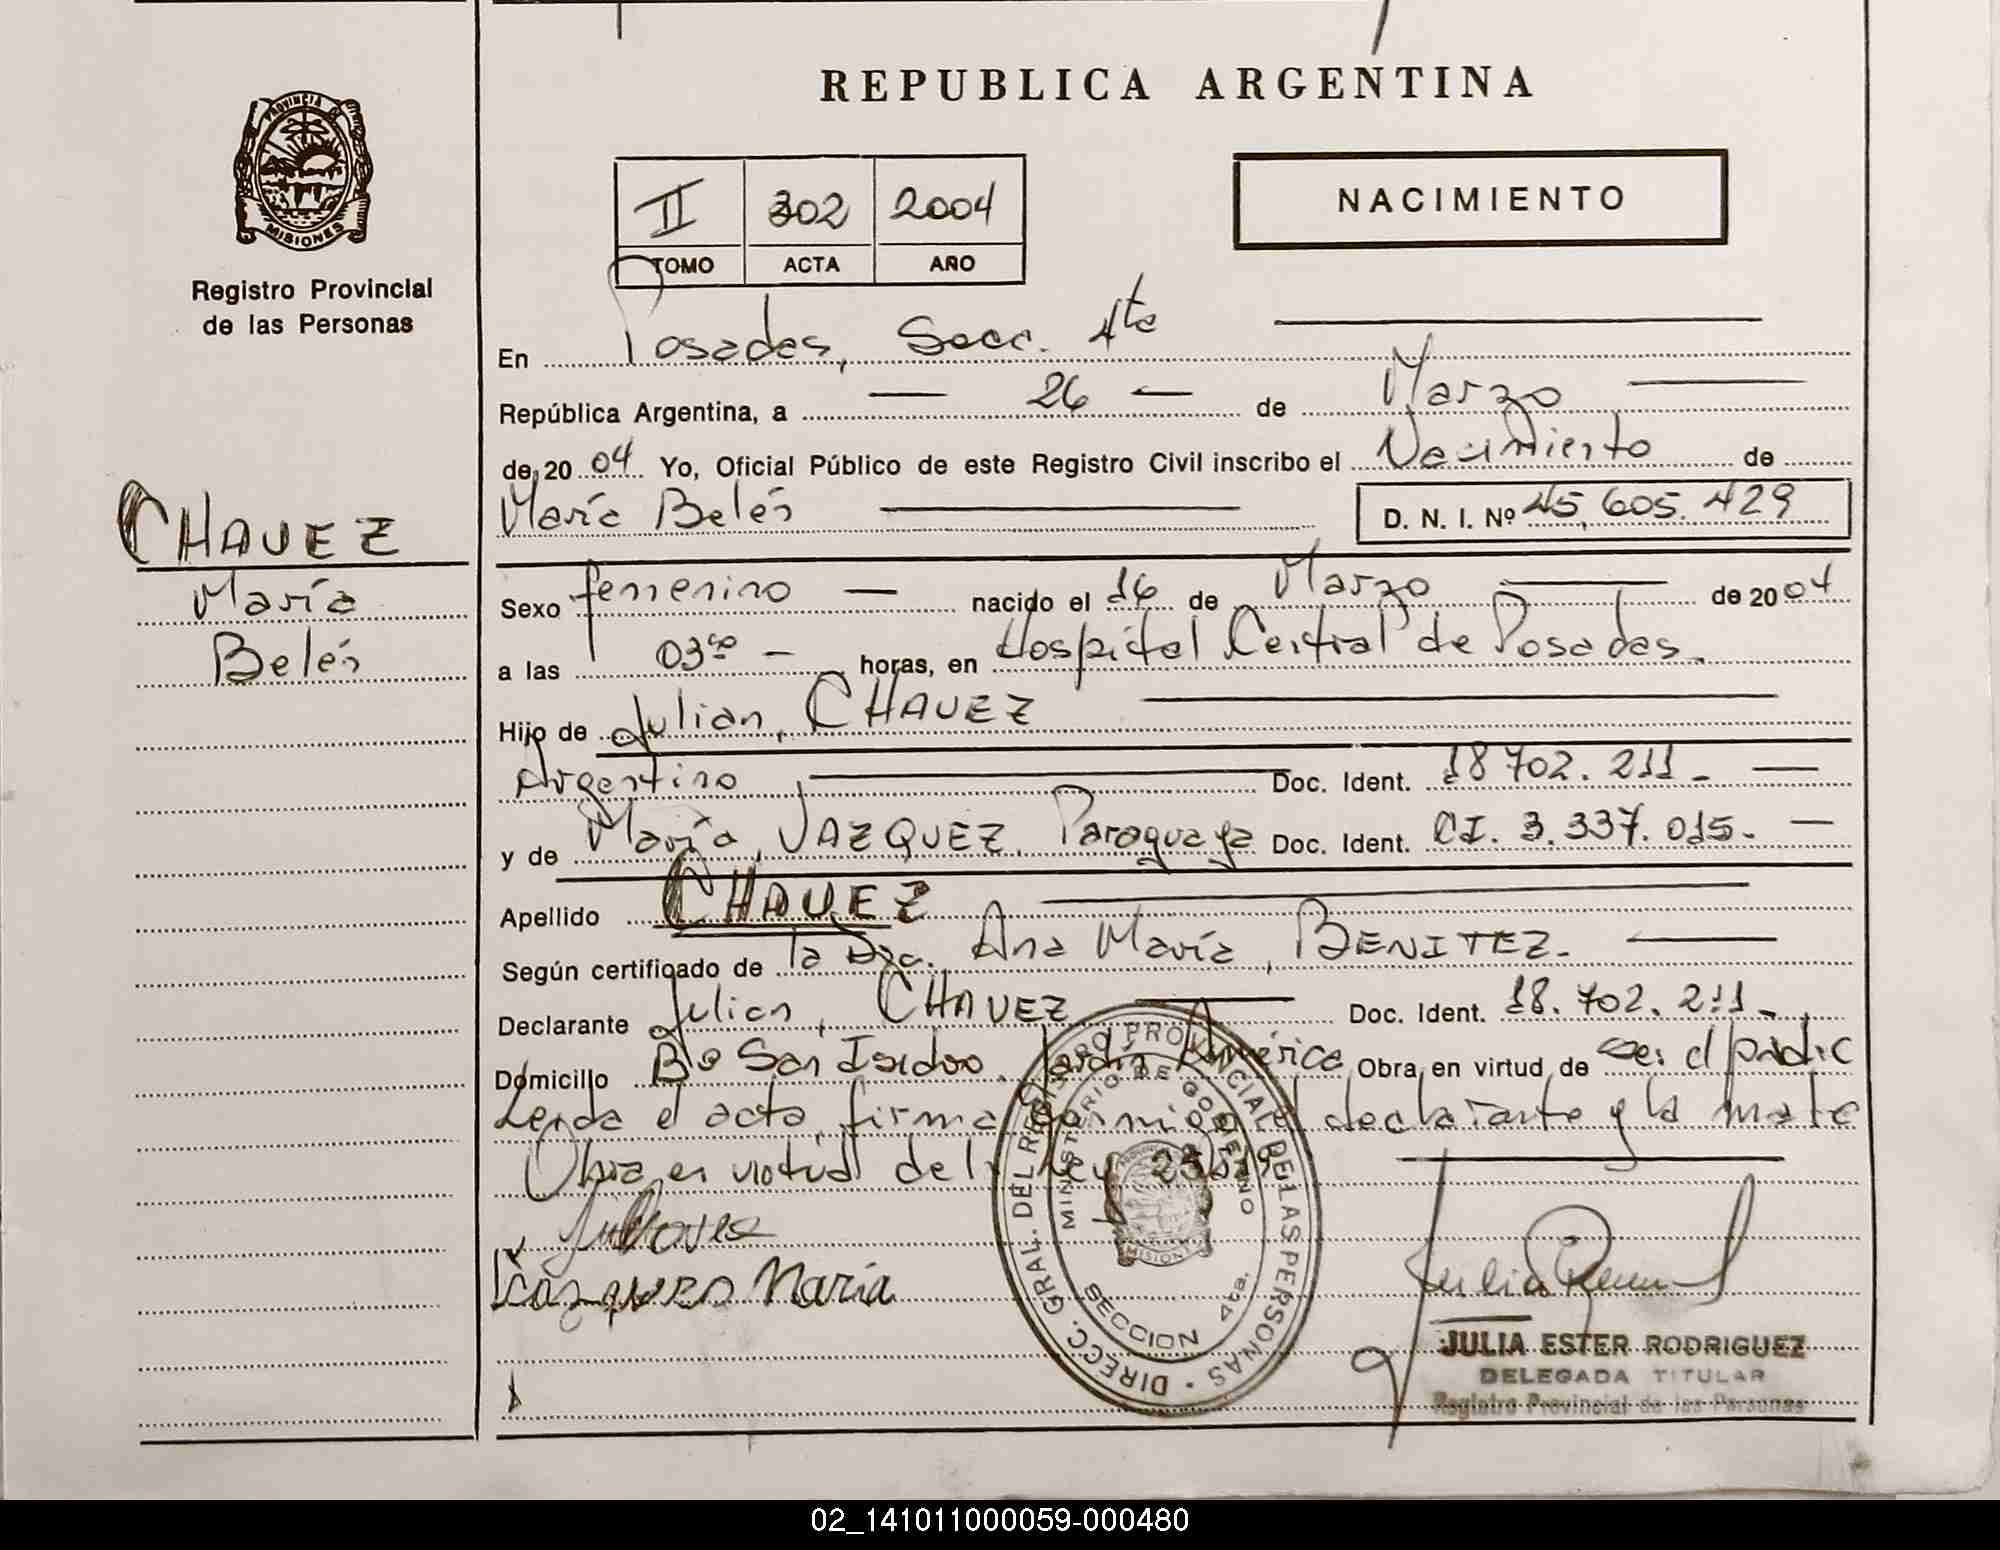 REPUBLICA ARGENTINA
PROVINCIA DE
MISIONES
Registro Provincial
de las Personas
II 302 2004
TOMO ACTA AÑO
NACIMIENTO
En Posadas, Secc. 4ta
República Argentina, a — 26 — de Marzo
de 2004 Yo, Oficial Público de este Registro Civil inscribo el Nacimiento de
María Belén D. N. I. Nº 45.605.429
CHAVEZ
María
Belén
Sexo femenino — nacido el 16 de Marzo de 2004
a las 03 — horas, en Hospital Central de Posadas.
Hijo de Julian, CHAVEZ
Argentino Doc. Ident. 18.702.211. —
y de María, VAZQUEZ. Paraguaya Doc. Ident. CI. 3.337.015. —
Apellido CHAVEZ
Según certificado de la Dra. Ana María, BENITEZ.
Declarante Julian, CHAVEZ Doc. Ident. 18.702.211.
Domicilio Bº San Isidro, América Obra en virtud de ser el padre
Leída el acta, firma conmigo el declarante y la madre
Obra en virtud de ley
Vazquez María
DIRECC. GRAL. DEL REGISTRO PROVINCIAL DE LAS PERSONAS
MINISTERIO DE GOBIERNO
MISIONES
SECCION 4ta.
JULIA ESTER RODRIGUEZ
DELEGADA TITULAR
Registro Provincial de las Personas
02_141011000059-000480